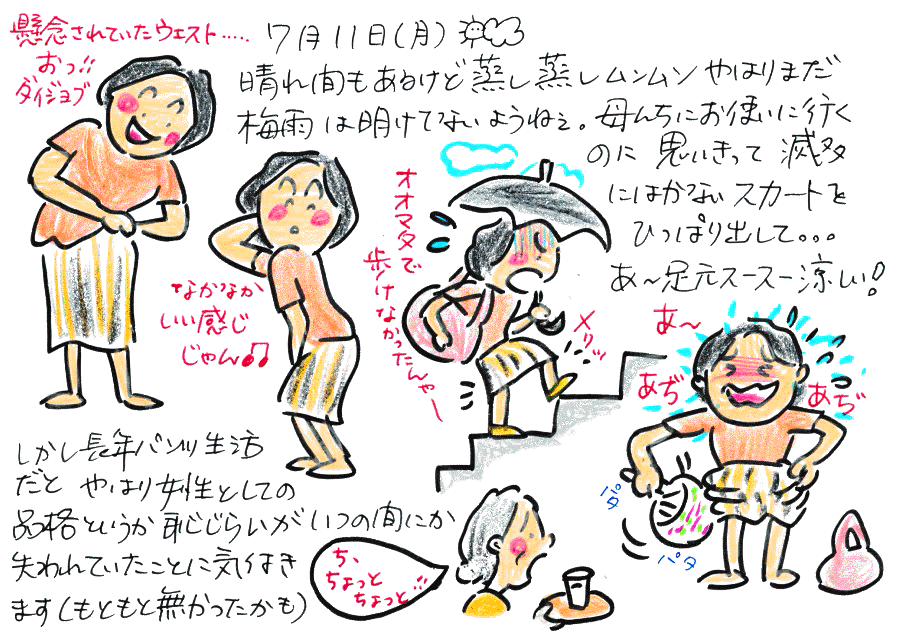 懸念されていたウエスト.....
おっ!!
ダイジョブ
7月11日(月)
晴れ間もあるけど蒸し蒸しムンムンやはりまだ
梅雨は明けてないようねぇ。母んちにお使いに行く
のに思いきって滅多
にはかないスカートを
ひっぱり出して。。。
あ〜足元スースー涼しい!
なかなか
いい感じ
じゃん♫
オオマタで
歩けなかったんやー
メリッ
あ〜
あぢ
あぢ
パタ
パタ
しかし長年パンツ生活
だと やはり女性としての
品格というか恥じらいがいつの間にか
失われていたことに気付き
ます(もともと無かったかも)
ち、
ちょっと
ちょっと!!